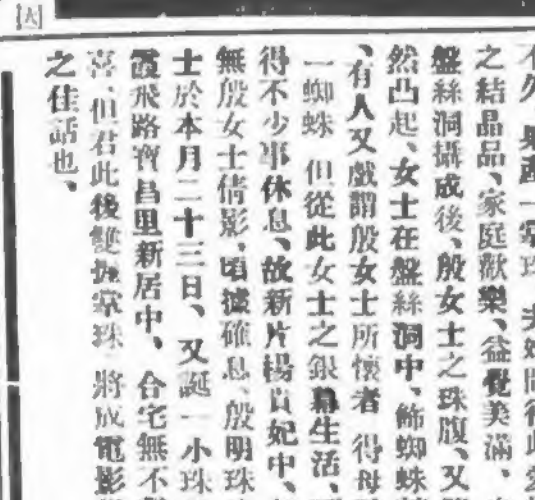 不久、果產一掌珠、夫婦間得此愛
之結晶品、家庭歡樂、益覺美滿、
盤絲洞攝成後、殷女士之珠腹、又
然凸起、女士在盤絲洞中、飾蜘蛛
、有人又戲謂殷女士所懷者、得毋
一蜘蛛、但從此女士之銀幕生活、
得不少事休息、故新片楊貴妃中、
無殷女士倩影、頃據確息、殷明珠
士於本月二十三日、又誕一小珠
霞飛路寶昌里新居中、合宅無不
喜、但君此後雙握掌珠、將成電影
之佳話也、